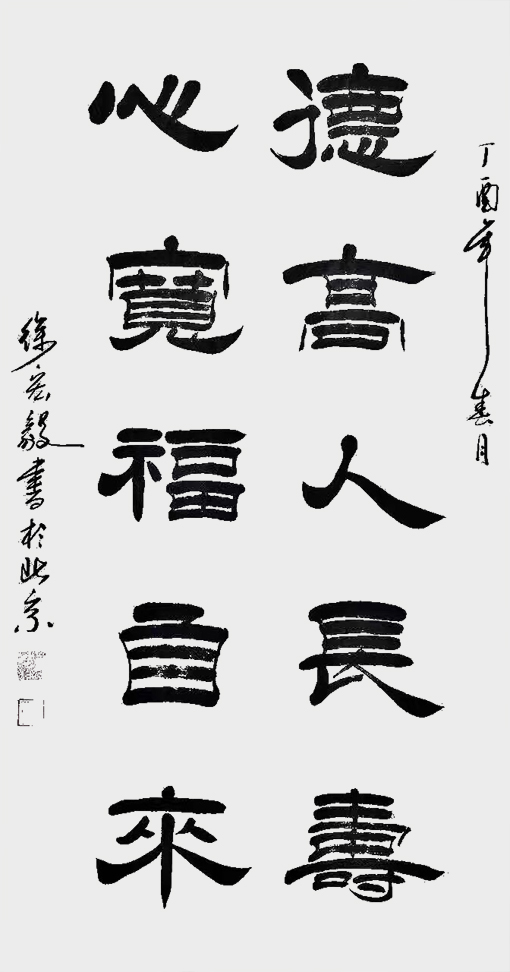 丁酉年春月
德高人長壽
心寬福自來
徐宏毅書於北京